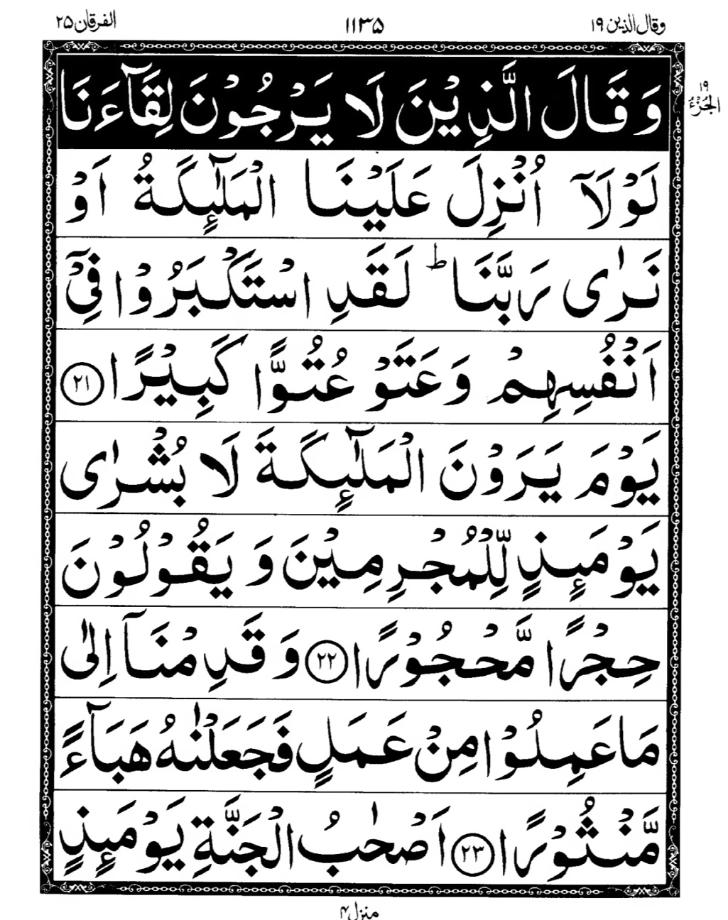 وقال الذين ۱۹ ۱۱۳۵ الفرقان ۲۵
۱۹
الجزء
وَقَالَ الَّذِيْنَ لَا يَرْجُوْنَ لِقَآءَنَا
لَوْلَاۤ اُنْزِلَ عَلَيْنَا الْمَلٰٓئِكَةُ اَوْ
نَرٰى رَبَّنَا ؕ لَقَدِ اسْتَكْبَرُوْا فِيْۤ
اَنْفُسِهِمْ وَعَتَوْ عُتُوًّا كَبِيْرًا ﴿۲۱﴾
يَوْمَ يَرَوْنَ الْمَلٰٓئِكَةَ لَا بُشْرٰى
يَوْمَئِذٍ لِّلْمُجْرِمِيْنَ وَيَقُوْلُوْنَ
حِجْرًا مَّحْجُوْرًا ﴿۲۲﴾ وَقَدِمْنَاۤ اِلٰى
مَا عَمِلُوْا مِنْ عَمَلٍ فَجَعَلْنٰهُ هَبَآءً
مَّنْثُوْرًا ﴿۲۳﴾ اَصْحٰبُ الْجَنَّةِ يَوْمَئِذٍ
منزل ۴